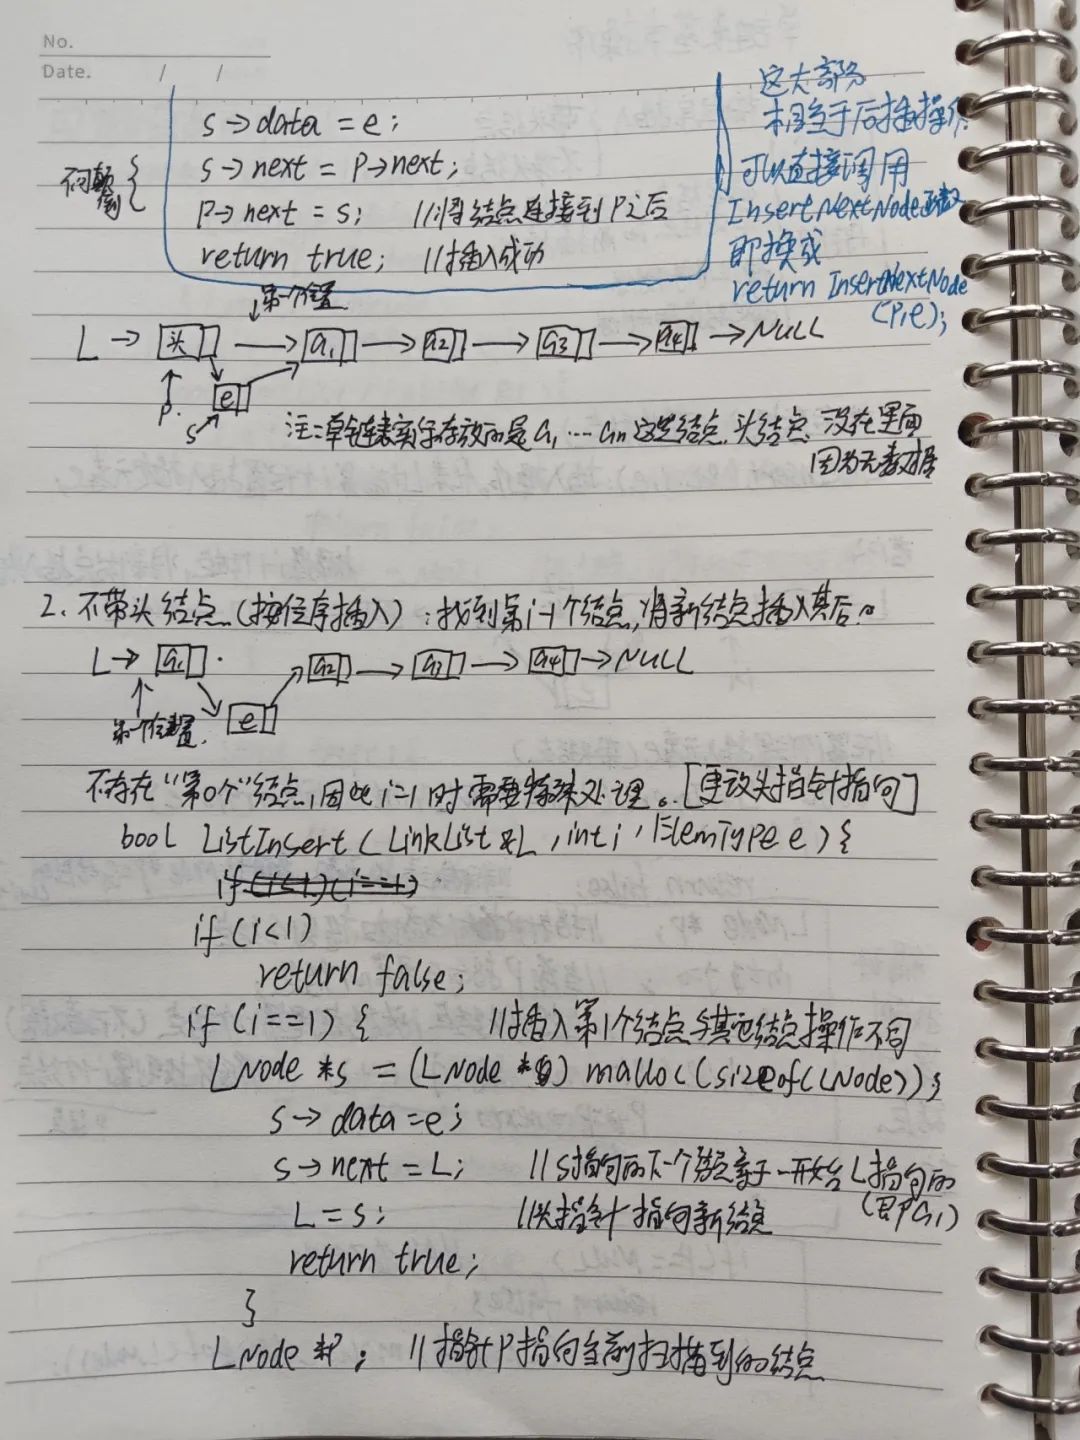 No.
Date. / /
s→data = e;
s→next = p→next;
p→next = s; //将结点连接到p之后
return true; //插入成功
不可颠倒
这大部分
相当于后插操作
可以直接调用
InsertNextNode函数
即换成
return InsertNextNode
(p,e);
第一个位置
L → 头 → a1 → a2 → a3 → a4 → NULL
p. s e
注:单链表实际存放的是a1…an这些结点,头结点没在里面
因为无数据
2. 不带头结点(按位序插入):找到第i-1个结点,将新结点插入其后。
L → a1 a2 → a3 → a4 → NULL
第一个位置. e
不存在“第0个”结点,因此i=1时需要特殊处理。[更改头指针指向]
bool ListInsert(LinkList &L, int i, ElemType e){
if(i<1)(i==1)
if(i<1)
return false;
if(i==1){ //插入第1个结点与其他结点操作不同
LNode *s = (LNode *) malloc(sizeof(LNode));
s→data=e;
s→next=L; //s指向的下一个结点等于一开始L指向的
(即a1)
L=s; //头指针指向新结点
return true;
}
LNode *p; //指针p指向当前扫描到的结点